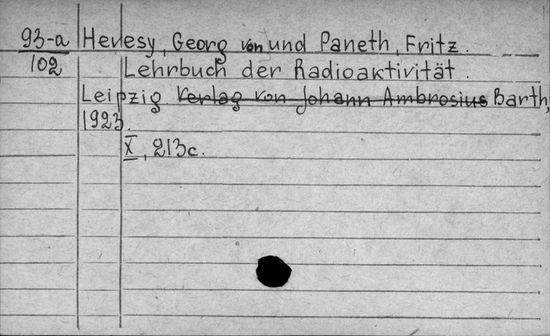 93-a Hevesy, Georg von und Paneth, Fritz.
102 Lehrbuch der Radioaktivität.
Leipzig Verlag von Johann Ambrosius Barth,
1923.
X, 213c.